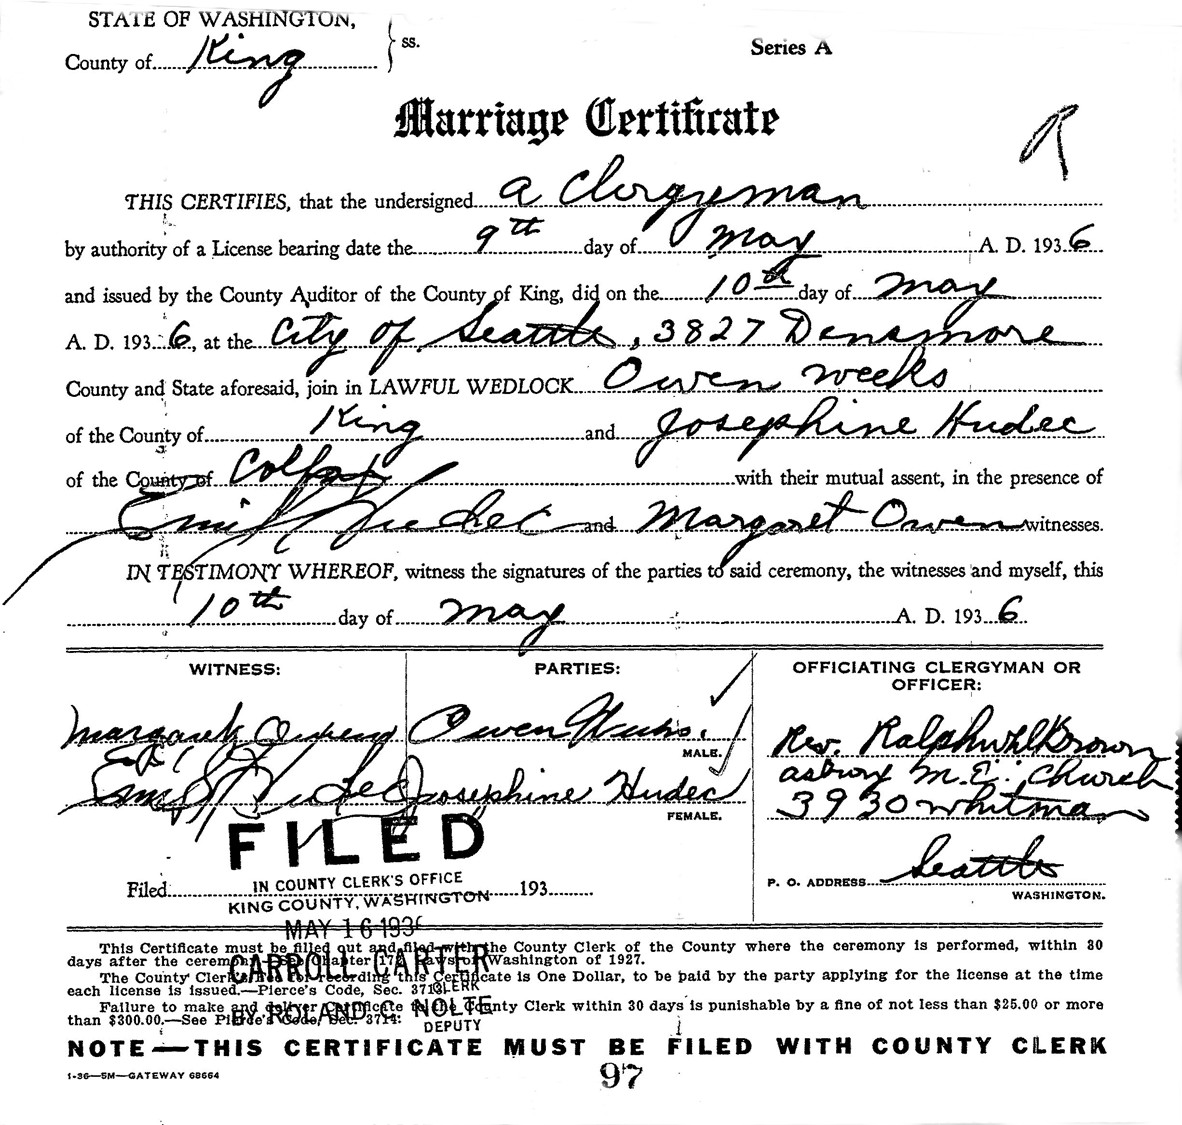 STATE OF WASHINGTON,
County of King ss.
Series A
Marriage Certificate
R
THIS CERTIFIES, that the undersigned a Clergyman
by authority of a License bearing date the 9th day of May A. D. 1936
and issued by the County Auditor of the County of King, did on the 10th day of May
A. D. 1936, at the City of Seattle, 3827 Densmore
County and State aforesaid, join in LAWFUL WEDLOCK Owen Weeks
of the County of King and Josephine Hudec
of the County of Colfax with their mutual assent, in the presence of
Emil Hudec and Margaret Owen witnesses.
IN TESTIMONY WHEREOF, witness the signatures of the parties to said ceremony, the witnesses and myself, this
10th day of May A. D. 1936.
WITNESS:
Margaret
Emil Hudec
PARTIES:
Owen Weeks.
MALE.
Josephine Hudec
FEMALE.
OFFICIATING CLERGYMAN OR
OFFICER:
Rev. Ralph Brown
Asbury M.E. Church
3930 Whitman
Seattle
P. O. ADDRESS
WASHINGTON.
FILED
Filed 193
IN COUNTY CLERK'S OFFICE
KING COUNTY, WASHINGTON
MAY 16 1936
CARROLL CARTER
CLERK
BY ROLAND C NOLTE
DEPUTY
This Certificate must be filled out and filed with the County Clerk of the County where the ceremony is performed, within 30
days after the ceremony. Chapter 172, Laws of Washington of 1927.
The County Clerk's fee for recording this Certificate is One Dollar, to be paid by the party applying for the license at the time
each license is issued.—Pierce's Code, Sec. 3713.
Failure to make and deliver Certificate to the County Clerk within 30 days is punishable by a fine of not less than $25.00 or more
than $300.00.—See Pierce's Code, Sec. 3714:
NOTE—THIS CERTIFICATE MUST BE FILED WITH COUNTY CLERK
1-36—5M—GATEWAY 68664
97